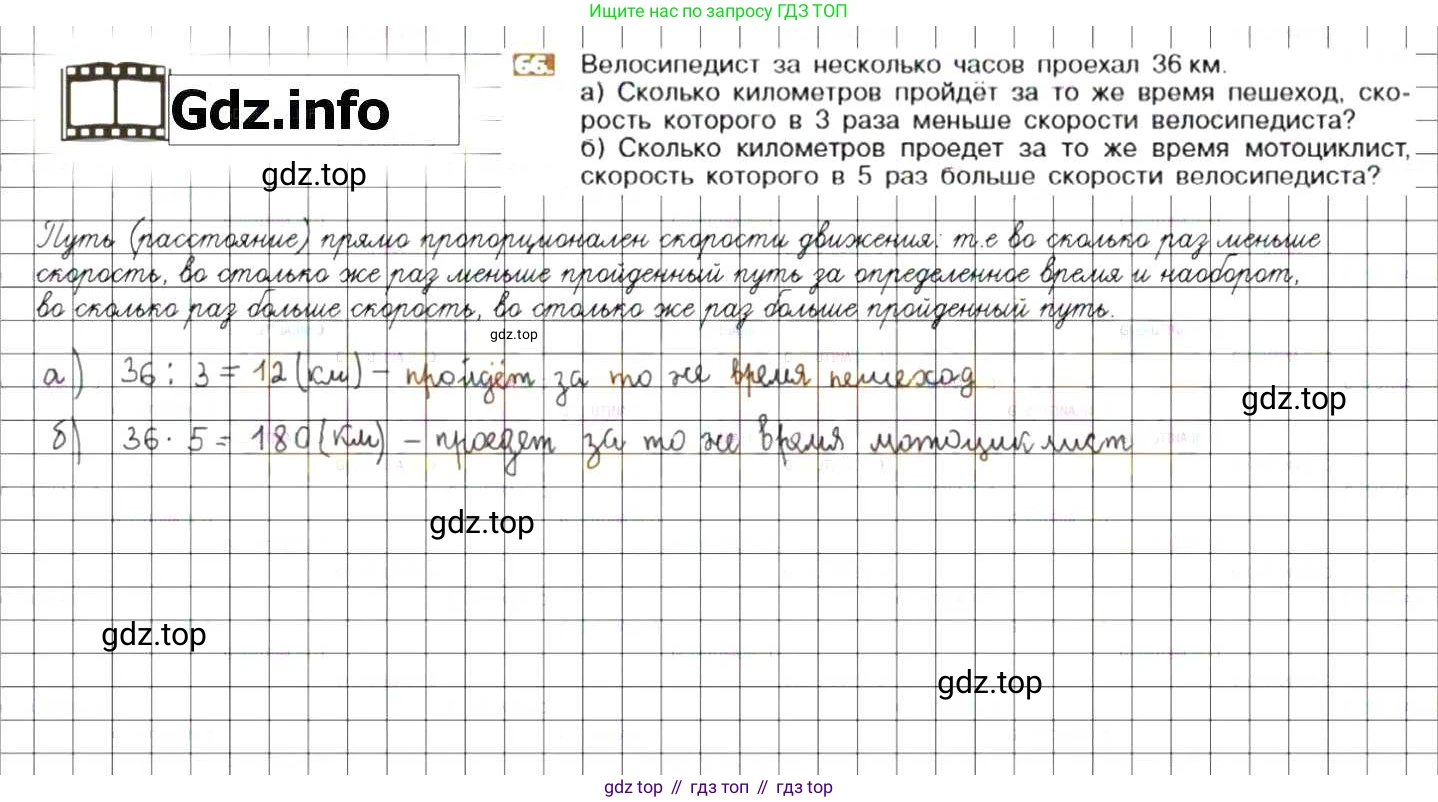 Ищите нас по запросу ГДЗ ТОП
66. Велосипедист за несколько часов проехал 36 км.
а) Сколько километров пройдёт за то же время пешеход, ско-
рость которого в 3 раза меньше скорости велосипедиста?
б) Сколько километров проедет за то же время мотоциклист,
скорость которого в 5 раз больше скорости велосипедиста?
Gdz.info
gdz.top
Путь (расстояние) прямо пропорционален скорости движения: т.е во сколько раз меньше
скорость, во столько же раз меньше пройденный путь за определенное время и наоборот,
во сколько раз больше скорость, во столько же раз больше пройденный путь.
gdz.top
а) 36 : 3 = 12 (км) – пройдёт за то же время пешеход
gdz.top
б) 36 · 5 = 180 (км) – проедет за то же время мотоциклист
gdz.top
gdz.top
gdz.top
gdz top // гдз топ // gdz top